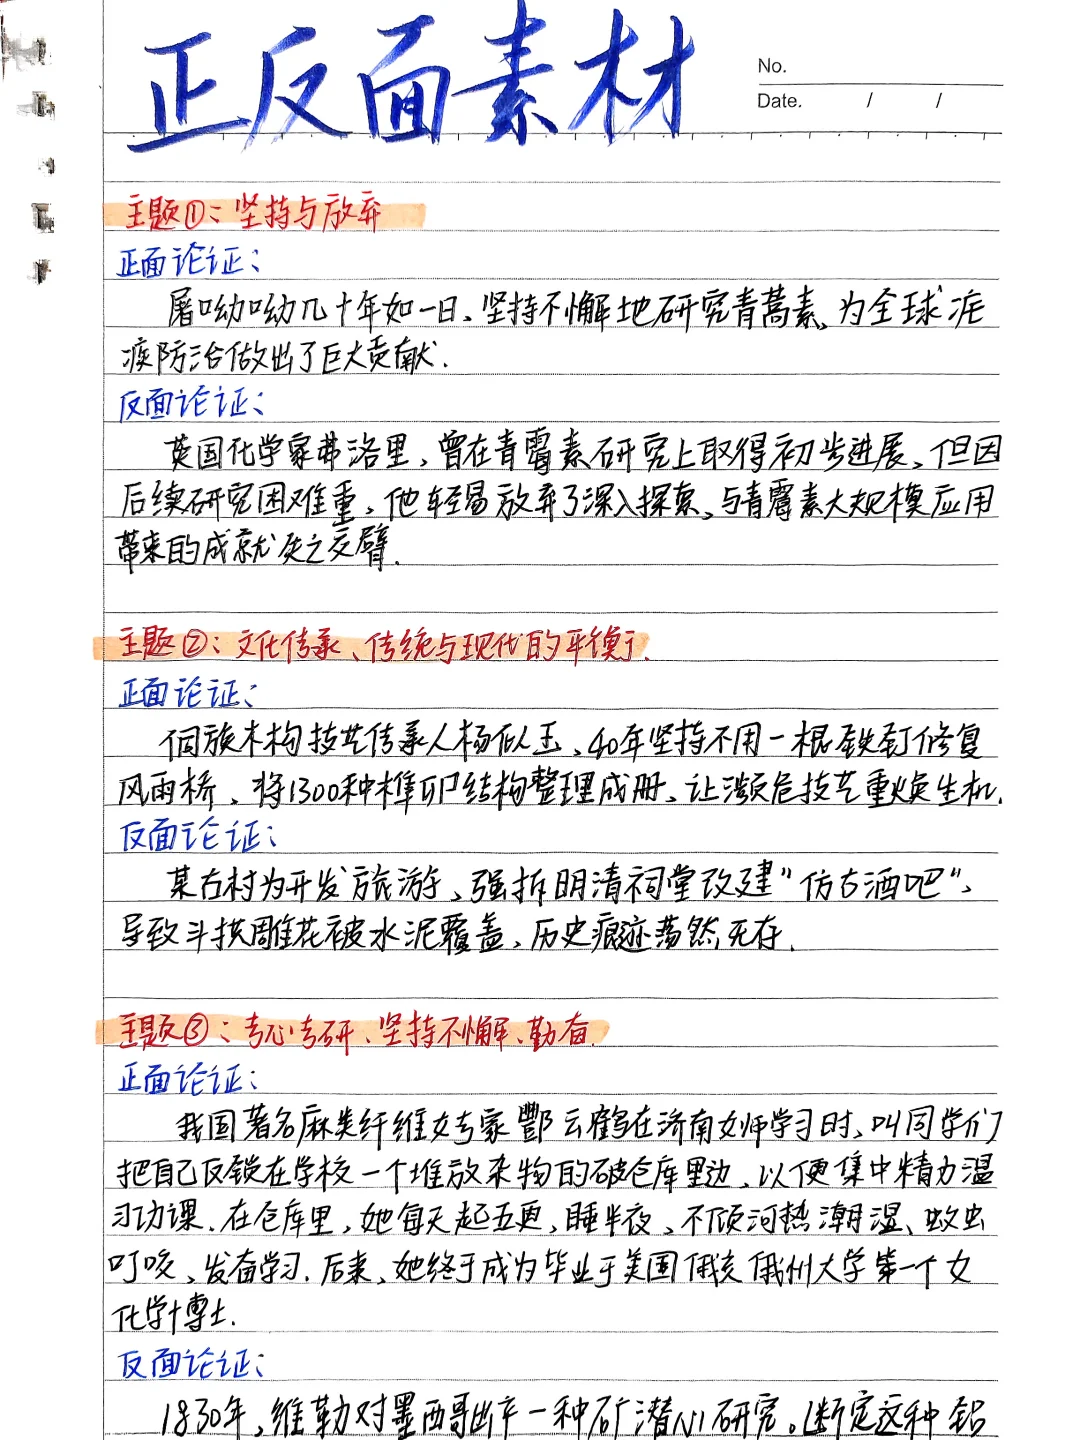 正反面素材
No.
Date. / /
主题①：坚持与放弃
正面论证：
屠呦呦几十年如一日、坚持不懈地研究青蒿素、为全球疟
疾防治做出了巨大贡献.
反面论证：
英国化学家弗洛里，曾在青霉素研究上取得初步进展、但因
后续研究困难重重，他轻易放弃了深入探索、与青霉素大规模应用
带来的成就失之交臂.
主题②：文化传承、传统与现代的平衡.
正面论证：
侗族木构技艺传承人杨似玉、40年坚持不用一根铁钉修复
风雨桥、将1300种榫卯结构整理成册、让濒危技艺重焕生机.
反面论证：
某古村为开发旅游、强拆明清祠堂改建“仿古酒吧”、
导致斗拱雕花被水泥覆盖、历史痕迹荡然无存.
主题③：专心专研、坚持不懈、勤奋.
正面论证：
我国著名麻类纤维女专家酆云鹤在济南女师学习时、叫同学们
把自己反锁在学校一个堆放杂物的破仓库里边、以便集中精力温
习功课.在仓库里，她每天起五更，睡半夜，不顾河热潮湿、蚊虫
叮咬，发奋学习.后来，她终于成为毕业于美国俄亥俄州大学第一个女
化学博士.
反面论证：
1830年，维勒对墨西哥出产一种矿潜心研究。断定这种铅